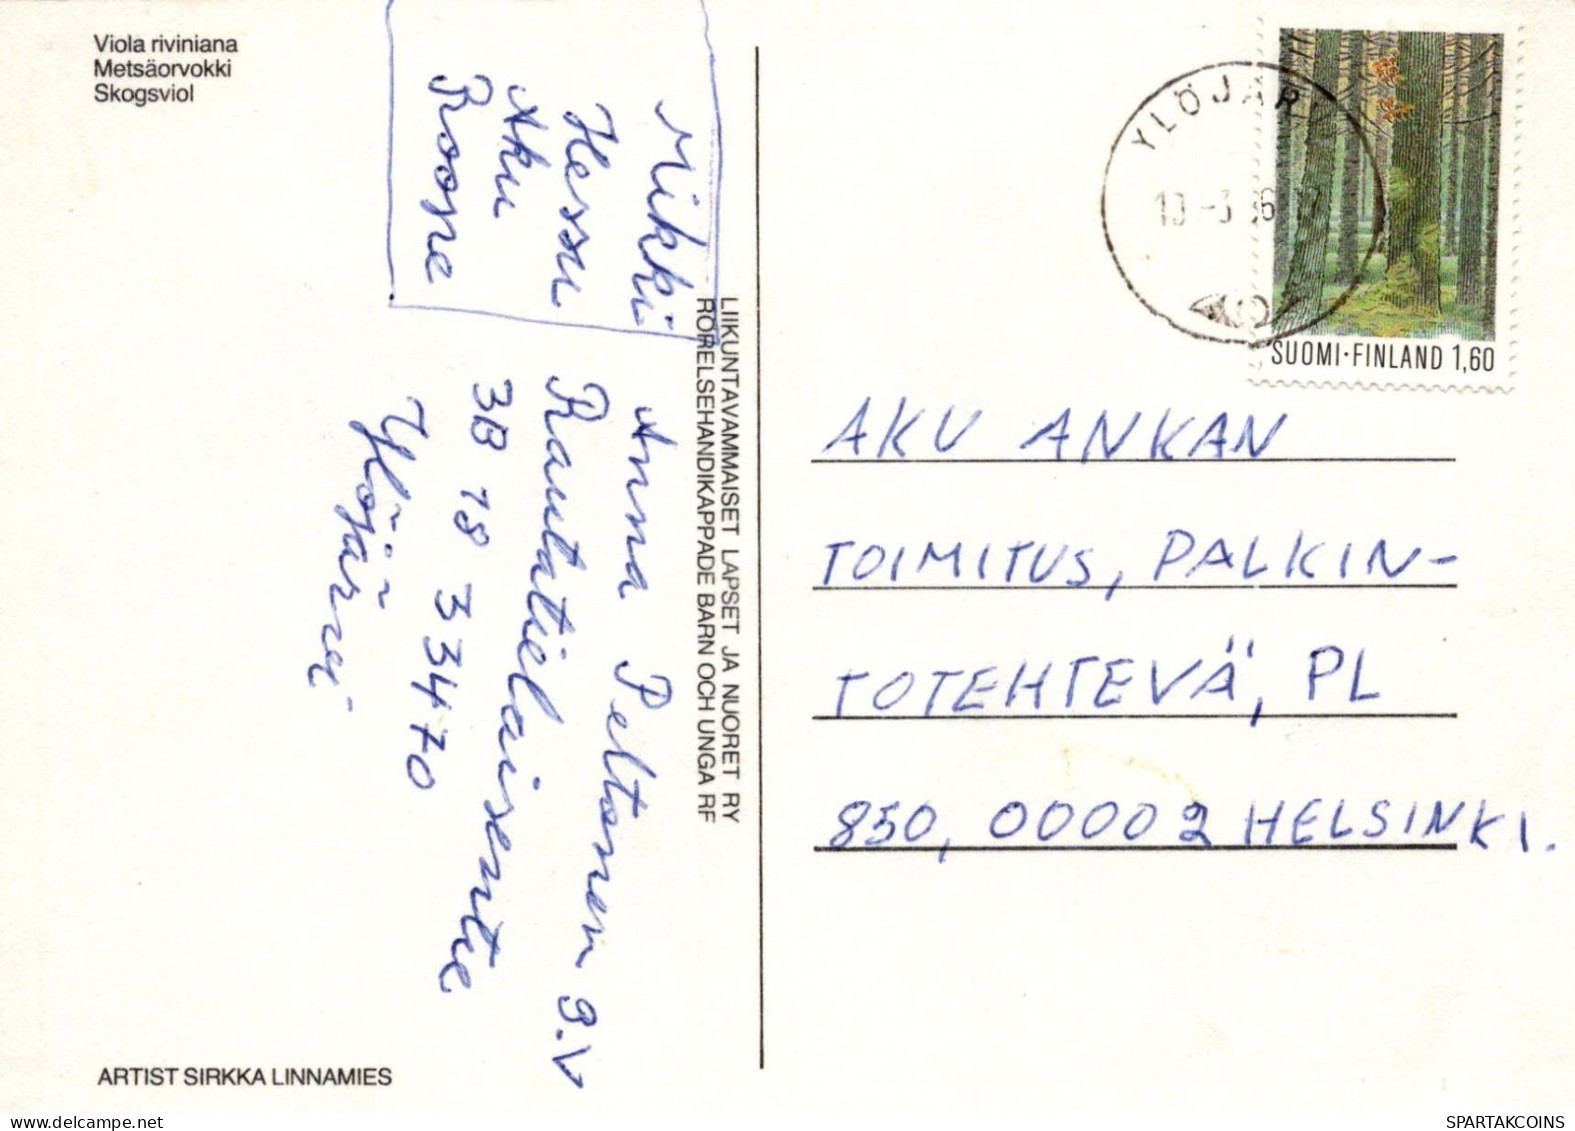 Viola riviniana
Metsäorvokki
Skogsviol
Mikki
Hessu
Aku
Roope
Anna Peltonen 9.V
Rautatieläisentie
3B 18 33470
Ylöjärvi
LIIKUNTAVAMMAISET LAPSET JA NUORET RY
RÖRELSEHANDIKAPPADE BARN OCH UNGA RF
ARTIST SIRKKA LINNAMIES
YLÖJÄRVI
SUOMI·FINLAND 1,60
AKU ANKAN
TOIMITUS, PALKIN-
TOTEHTEVÄ, PL
850, 00002 HELSINKI.
SPARTAKCOINS
delcampe.net